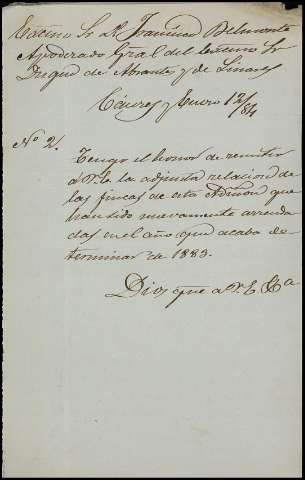 Excmo Sr D. Francisco Belmonte
Apoderado Gral del Excmo Sr
Duque de Abrantes y de Linares
Cáceres y Enero 12/84
Nº 2.
Tengo el honor de remitir
á V.E. la adjunta relacion de
las fincas de esta Admon que
han sido nuevamente arrenda
das en el año que acaba de
terminar de 1883.
Dios gue a V.E. &a